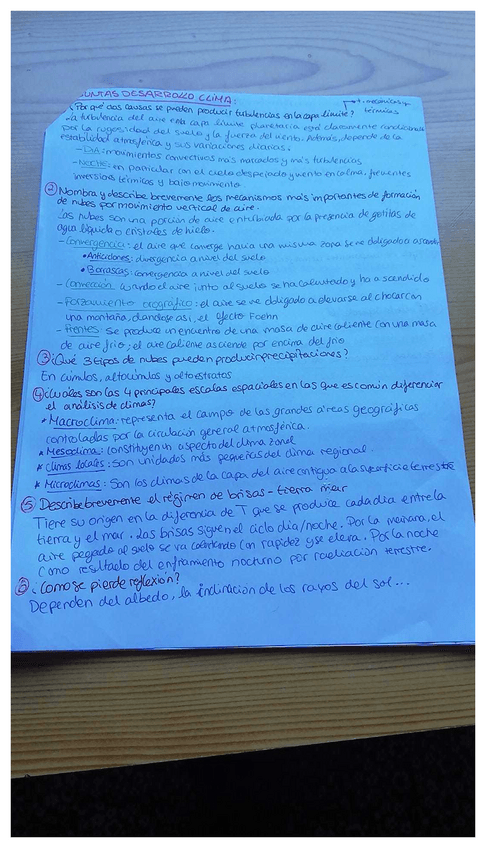 UNTAS DESARROLLO CLIMA:
¿Por qué dos causas se pueden producir turbulencias en la capa límite? → t. mecánicas y térmicas
La turbulencia del aire en la capa límite planetaria está claramente condicionada
por la rugosidad del suelo y la fuerza del viento. Además, depende de la
estabilidad atmosférica y sus variaciones diarias:
- DIA: movimientos convectivos más marcados y más turbulencias
- NOCHE: en particular con el cielo despejado y viento en calma, frecuentes
inversiones térmicas y bajo movimiento.
② Nombra y describe brevemente los mecanismos más importantes de formación
de nubes por movimiento vertical de aire.
Las nubes son una porción de aire enturbiada por la presencia de gotitas de
agua líquida o cristales de hielo.
- Convergencia: el aire que converge hacia una misma zona se ve obligado a ascender
• Anticiclones: divergencia a nivel del suelo
• Borrascas: convergencia a nivel del suelo
- Convección: cuando el aire junto al suelo se ha calentado y ha ascendido
- Forzamiento orográfico: el aire se ve obligado a elevarse al chocar con
una montaña, dandose así, el efecto Foehn
- Frentes: se produce un encuentro de una masa de aire caliente con una masa
de aire frío; el aire caliene asciende por encima del frío
③ ¿Qué 3 tipos de nubes pueden producir precipitaciones?
En cúmulos, altocúmulos y altoestratos
④ ¿Cuáles son las 4 principales escalas espaciales en las que es común diferenciar
el análisis de climas?
* Macroclima: representa el campo de las grandes áreas geográficas
controladas por la circulación general atmosférica.
* Mesoclima: constituyen un aspecto del clima zonal
* Climas locales: son unidades más pequeñas del clima regional
* Microclimas: Son los climas de la capa del aire contigua a la superficie terrestre
⑤ Describe brevemente el régimen de brisas - tierra mar
Tiene su origen en la diferencia de T que se produce cada dia entre la
tierra y el mar. Las brisas siguen el ciclo dia/noche. Por la mañana, el
aire pegado al suelo se va calentando con rapidez y se eleva. Por la noche
como resultado del enfriamiento nocturno por radiación terrestre.
⑥ ¿Como se pierde reflexión?
Dependen del albedo, la inclinación de los rayos del sol...